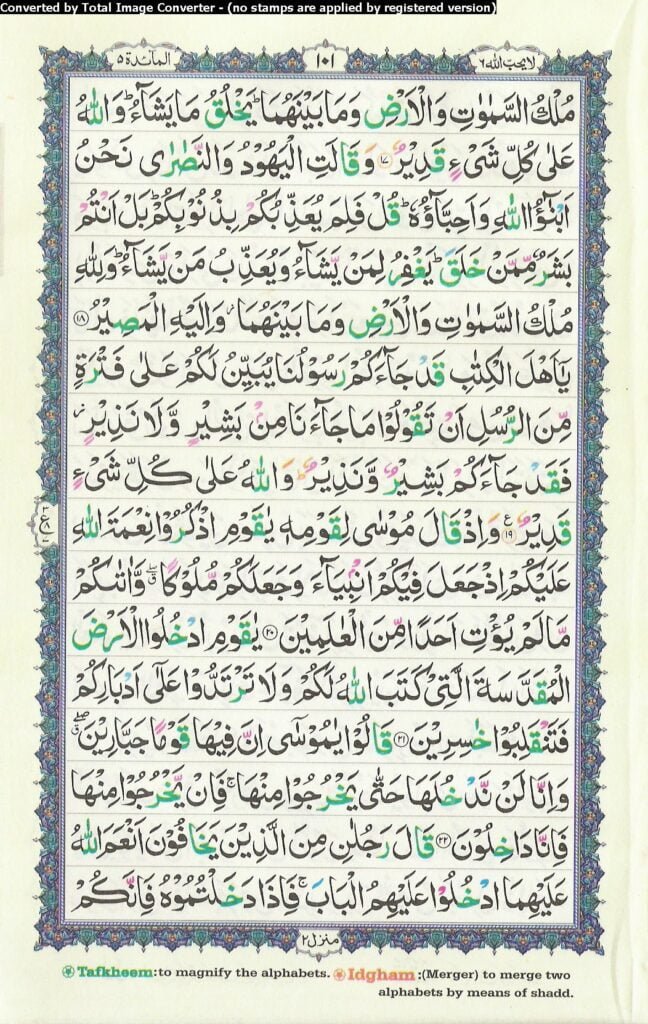 Converted by Total Image Converter - (no stamps are applied by registered version)
المآئدة ٥
١٠١
لا يحب الله ٦
مُلْكُ السَّمٰوٰتِ وَالْاَرْضِ وَمَا بَيْنَهُمَا ؕ يَخْلُقُ مَا يَشَآءُ ؕ وَاللّٰهُ
عَلٰى كُلِّ شَیْءٍ قَدِيْرٌ ﴿۱۷﴾ وَقَالَتِ الْيَهُوْدُ وَالنَّصٰرٰى نَحْنُ
اَبْنٰٓؤُا اللّٰهِ وَاَحِبَّآؤُهٗ ؕ قُلْ فَلِمَ يُعَذِّبُكُمْ بِذُنُوْبِكُمْ ؕ بَلْ اَنْتُمْ
بَشَرٌ مِّمَّنْ خَلَقَ ؕ يَغْفِرُ لِمَنْ يَّشَآءُ وَيُعَذِّبُ مَنْ يَّشَآءُ ؕ وَلِلّٰهِ
مُلْكُ السَّمٰوٰتِ وَالْاَرْضِ وَمَا بَيْنَهُمَا ؗ وَاِلَيْهِ الْمَصِيْرُ ﴿۱۸﴾
يٰۤاَهْلَ الْكِتٰبِ قَدْ جَآءَكُمْ رَسُوْلُنَا يُبَيِّنُ لَكُمْ عَلٰى فَتْرَةٍ
مِّنَ الرُّسُلِ اَنْ تَقُوْلُوْا مَا جَآءَنَا مِنْۢ بَشِيْرٍ وَّلَا نَذِيْرٍ ؗ
فَقَدْ جَآءَكُمْ بَشِيْرٌ وَّنَذِيْرٌ ؕ وَاللّٰهُ عَلٰى كُلِّ شَیْءٍ
قَدِيْرٌ ﴿۱۹﴾ ع وَاِذْ قَالَ مُوْسٰى لِقَوْمِهٖ يٰقَوْمِ اذْكُرُوْا نِعْمَةَ اللّٰهِ
عَلَيْكُمْ اِذْ جَعَلَ فِيْكُمْ اَنْۢبِيَآءَ وَجَعَلَكُمْ مُّلُوْكًا ۖ وَّاٰتٰىكُمْ
مَّا لَمْ يُؤْتِ اَحَدًا مِّنَ الْعٰلَمِيْنَ ﴿۲۰﴾ يٰقَوْمِ ادْخُلُوا الْاَرْضَ
الْمُقَدَّسَةَ الَّتِیْ كَتَبَ اللّٰهُ لَكُمْ وَلَا تَرْتَدُّوْا عَلٰۤى اَدْبَارِكُمْ
فَتَنْقَلِبُوْا خٰسِرِيْنَ ﴿۲۱﴾ قَالُوْا يٰمُوْسٰۤى اِنَّ فِيْهَا قَوْمًا جَبَّارِيْنَ ۖ
وَاِنَّا لَنْ نَّدْخُلَهَا حَتّٰى يَخْرُجُوْا مِنْهَا ۚ فَاِنْ يَّخْرُجُوْا مِنْهَا
فَاِنَّا دَاخِلُوْنَ ﴿۲۲﴾ قَالَ رَجُلٰنِ مِنَ الَّذِيْنَ يَخَافُوْنَ اَنْعَمَ اللّٰهُ
عَلَيْهِمَا ادْخُلُوْا عَلَيْهِمُ الْبَابَ ۚ فَاِذَا دَخَلْتُمُوْهُ فَاِنَّكُمْ
منزل ٢
Tafkheem:to magnify the alphabets. Idgham :(Merger) to merge two
alphabets by means of shadd.